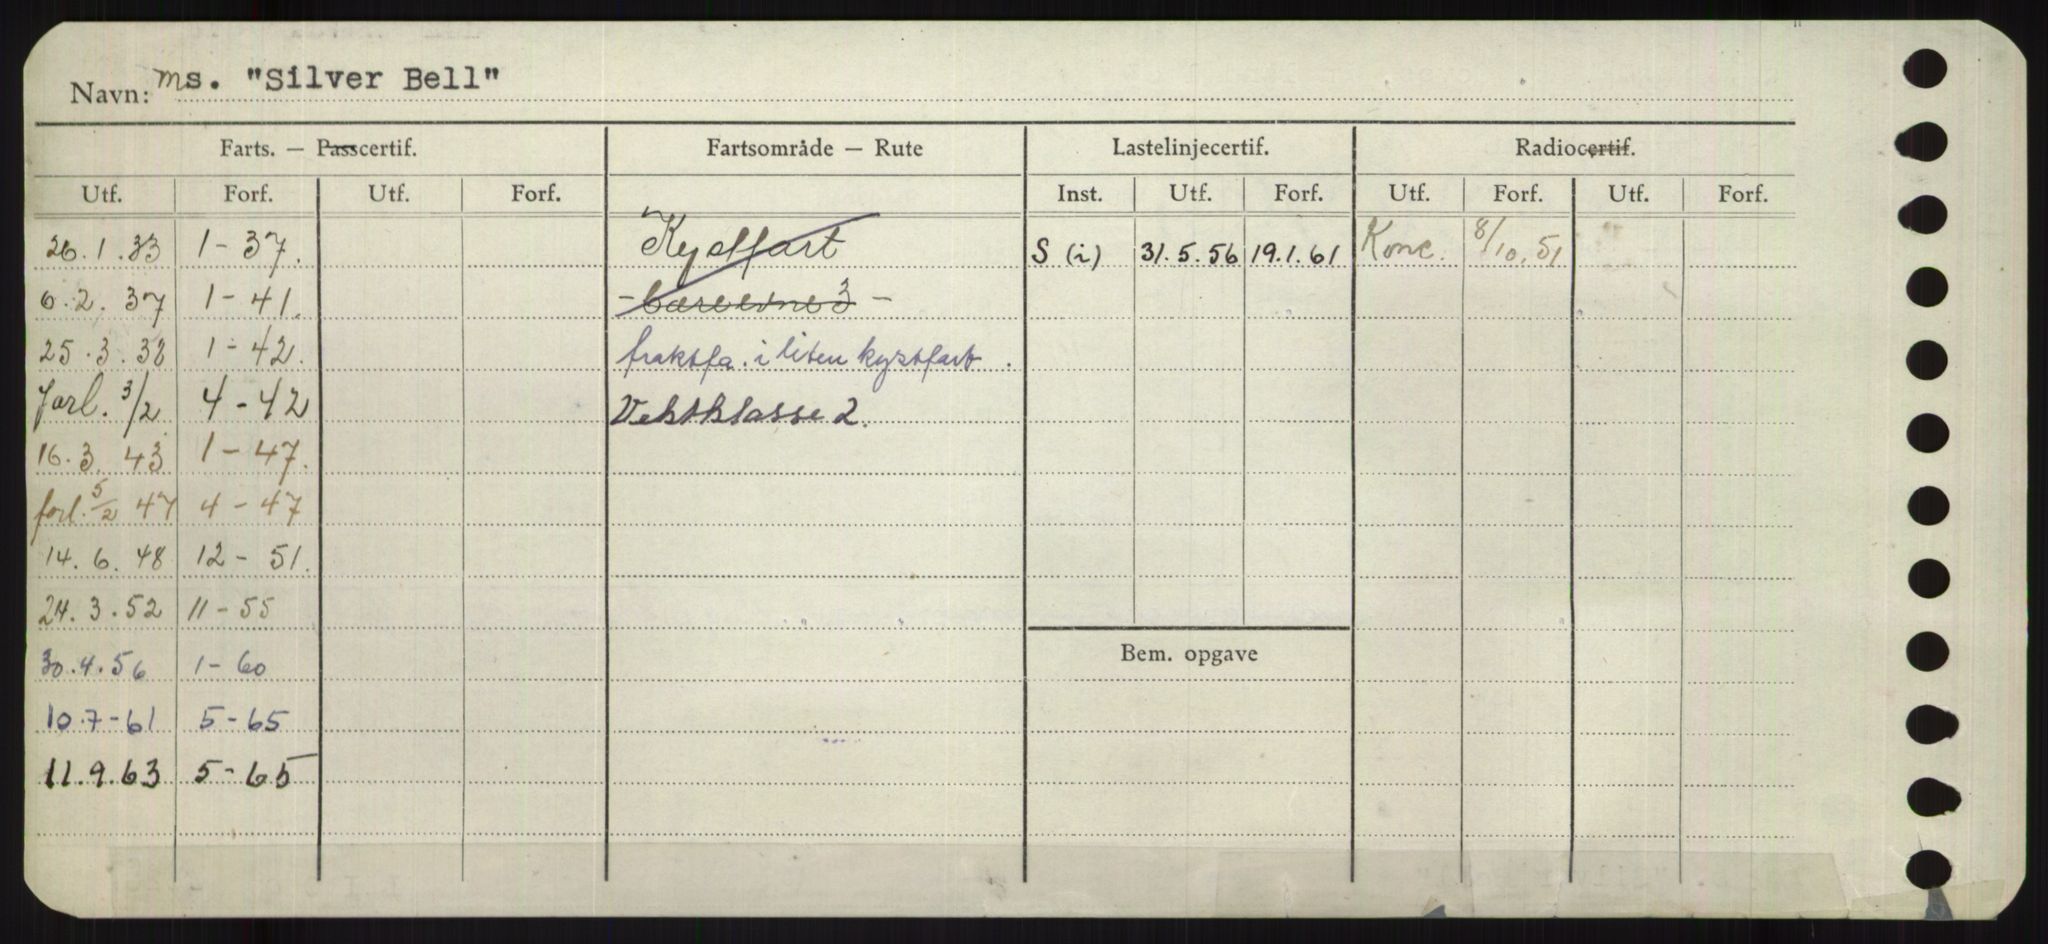 Navn: Ms. "Silver Bell"
Farts. — Passcertif. Fartsområde — Rute Lastelinjecertif. Radiocertif.
Utf. Forf. Utf. Forf. Inst. Utf. Forf. Utf. Forf. Utf. Forf.
26.1.33 1-37. Kystfart S (i) 31.5.56 19.1.61 Konc. 8/10.51
6.2.37 1-41. - bæreevne 3 -
25.3.38 1-42. fraktfa. i liten kystfart.
forl. 3/2 4-42 Vektklasse 2.
16.3.43 1-47.
forl. 5/2 47 4-47
14.6.48 12-51.
24.3.52 11-55
30.4.56 1-60
Bem. opgave
10.7-61 5-65
11.9.63 5-65